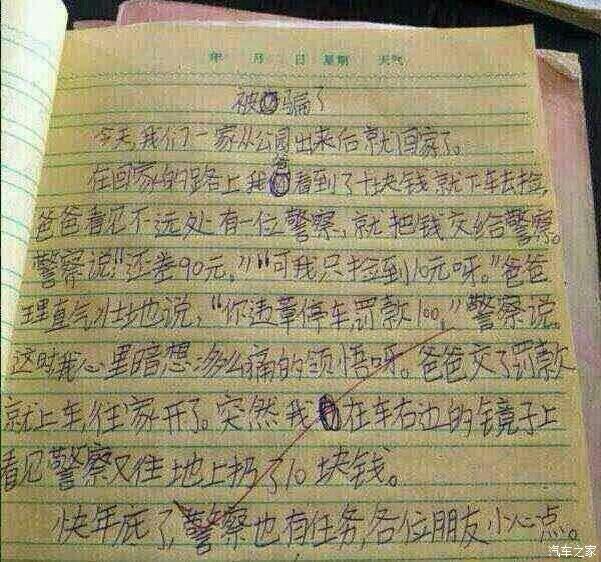 年 月 日 星期 天气
被骗了
今天,我们一家从公园出来后就回家了。
在回家的路上我看到了十块钱就下车去捡,
爸爸看见不远处有一位警察,就把钱交给警察。
警察说"还差90元,""可我只捡到10元呀。"爸爸
理直气壮地说,"你违章停车罚款100,"警察说。
这时我心里暗想:多么痛的领悟呀。爸爸交了罚款
就上车往家开了。突然我在车右边的镜子上
看见警察又往地上扔了10块钱。
快年底了,警察也有任务,各位朋友小心点。
汽车之家